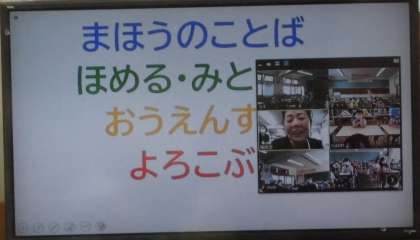 まほうのことば
ほめる・みと
おうえんす
よろこぶ